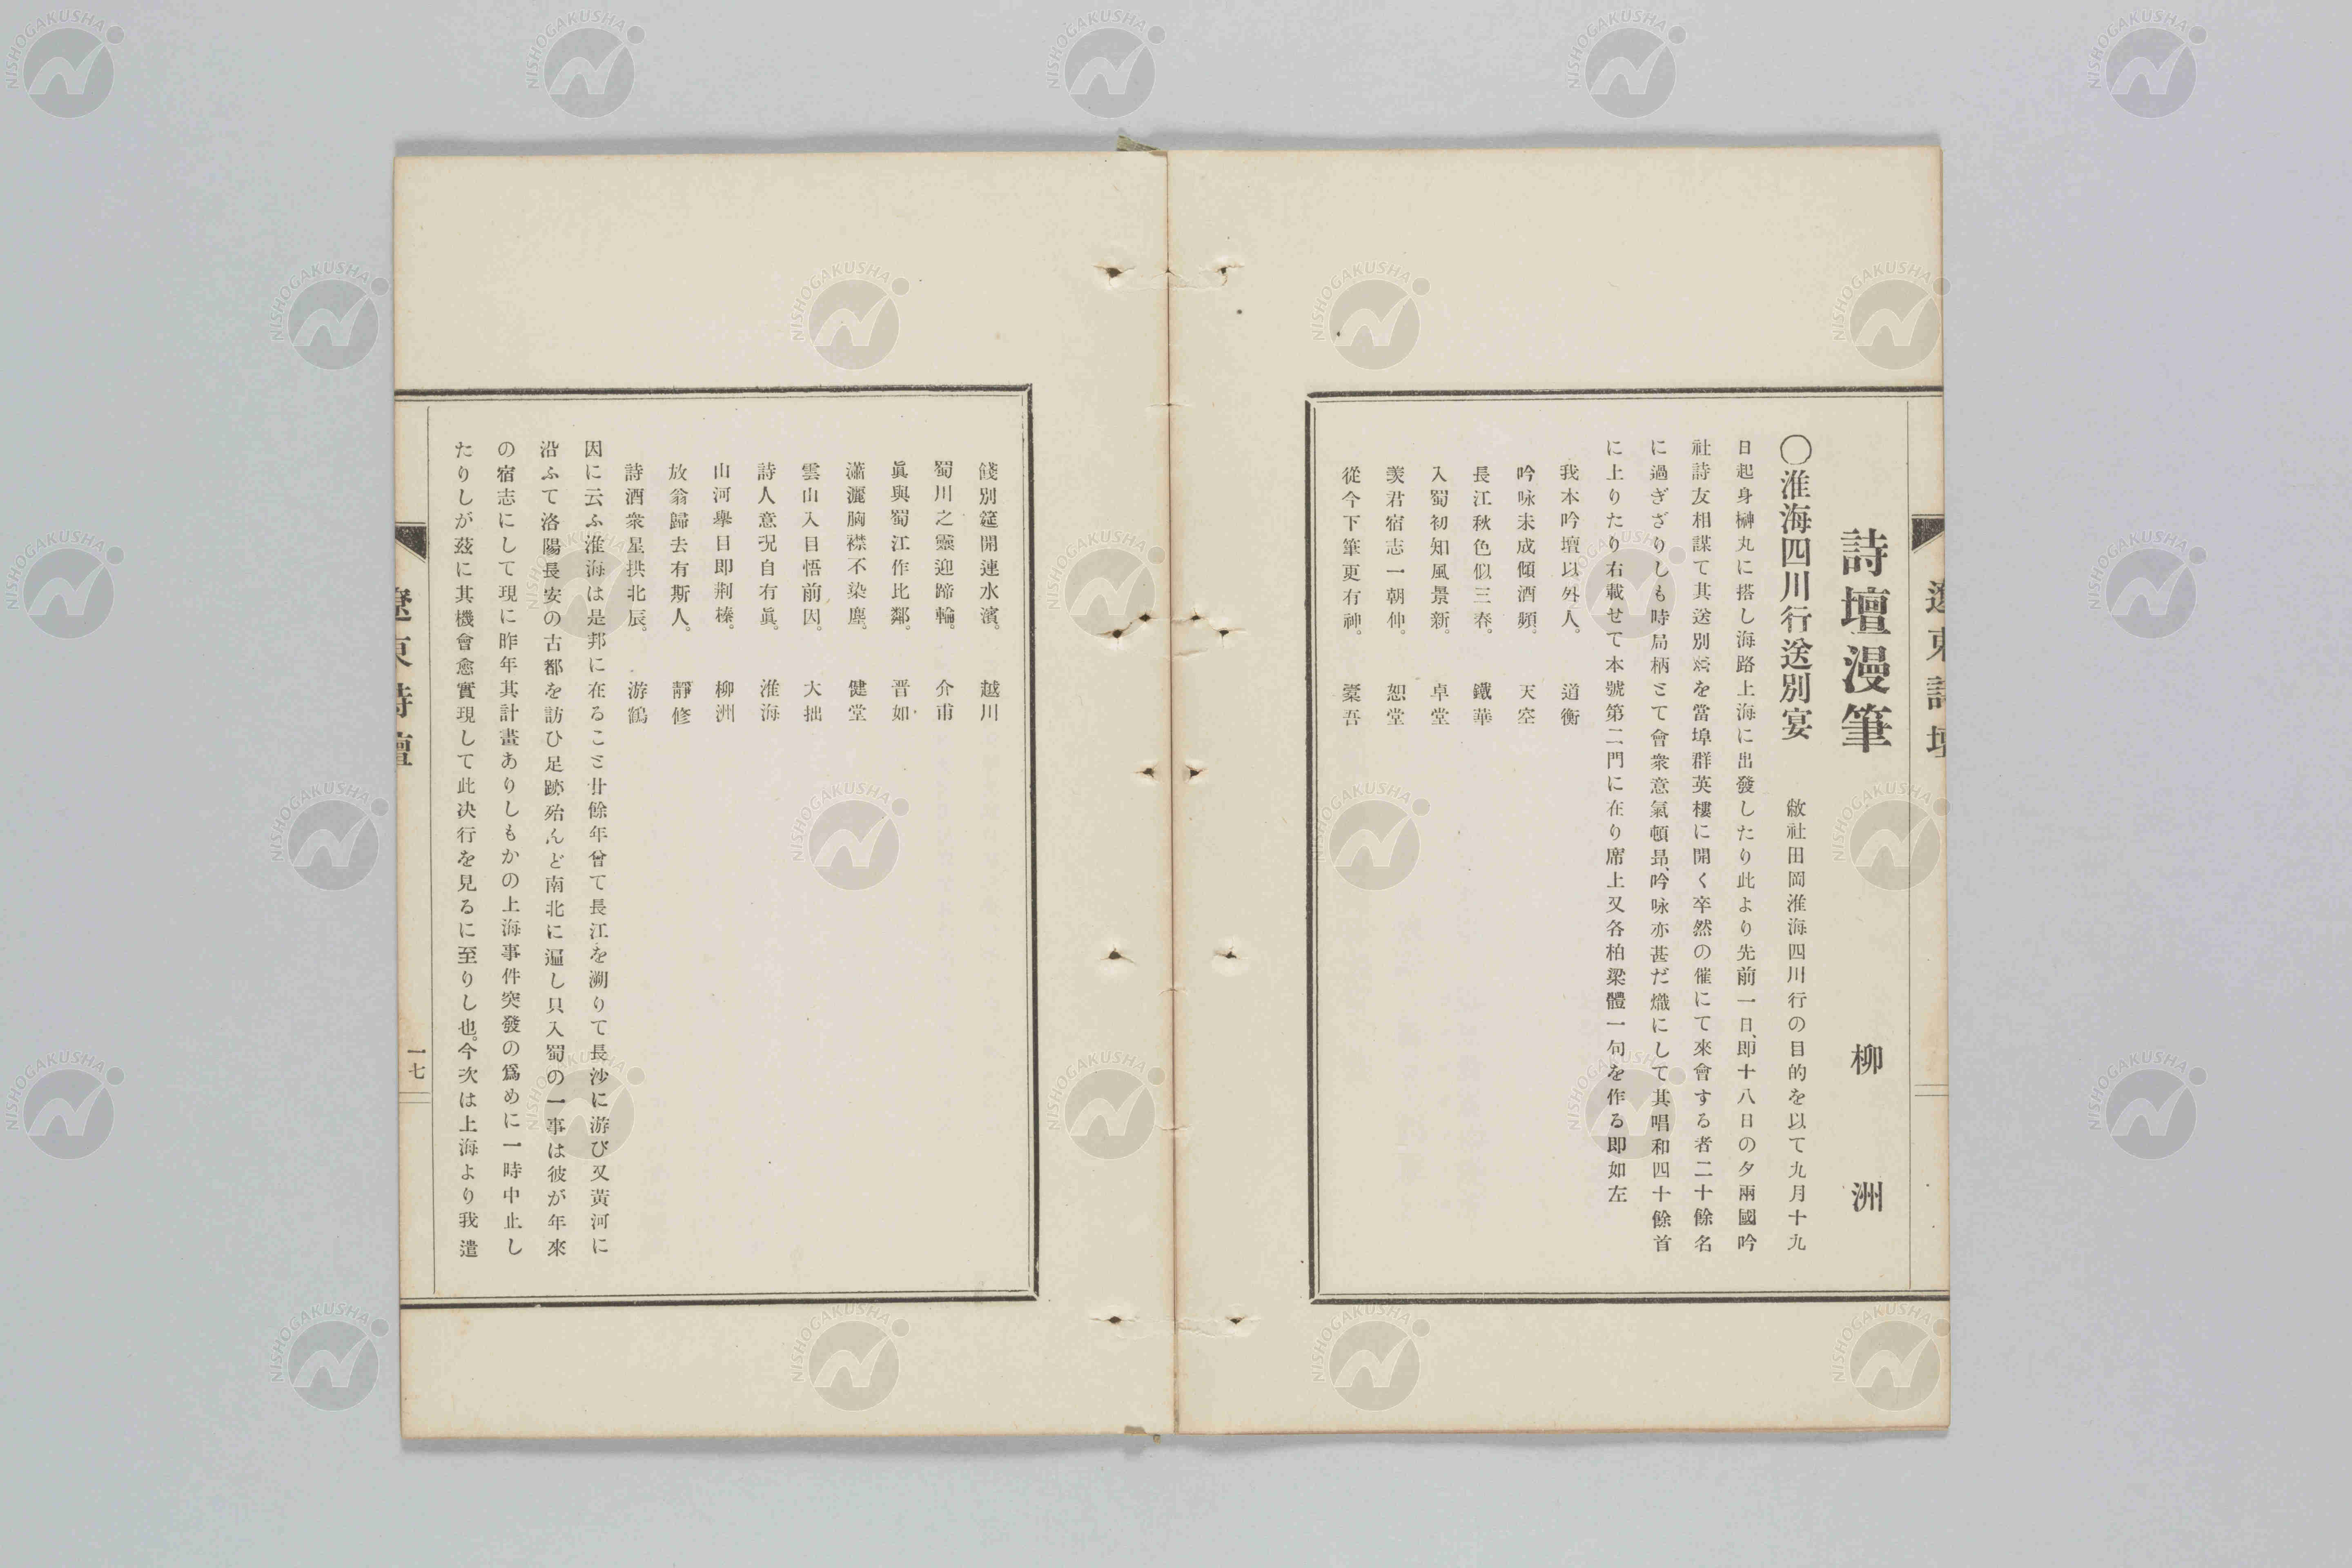 遼東詩壇
詩壇漫筆
柳洲
〇淮海四川行送別宴　敝社田岡淮海四川行の目的を以て九月十九
日起身榊丸に搭し海路上海に出發したり此より先前一日、即十八日の夕兩國吟
社詩友相謀て其送別を當埠群英樓に開く卒然の催にて來會する者二十餘名
に過ぎざりしも時局柄とて會衆意氣頓昂、吟咏亦甚だ熾にして其唱和四十餘首
に上りたり右載せて本號第二門に在り席上又各柏梁體一句を作る即如左
我本吟壇以外人。　道衡
吟咏未成傾酒頻。　天空
長江秋色似三春。　鐵華
入蜀初知風景新。　卓堂
羨君宿志一朝伸。　恕堂
從今下筆更有神。　槖吾
餞別筵開連水濱。　越川
蜀川之靈迎蹄輪。　介甫
眞與蜀江作比鄰。　晋如
瀟灑胸襟不染塵。　健堂
雲山入目悟前因。　大拙
詩人意況自有眞。　淮海
山河舉目即荆榛。　柳洲
放翁歸去有斯人。　靜修
詩酒衆星拱北辰。　游鶴
因に云ふ淮海は是邦に在ること廿餘年曾て長江を溯りて長沙に游び又黃河に
沿ふて洛陽長安の古都を訪ひ足跡殆んど南北に遍し只入蜀の一事は彼が年來
の宿志にして現に昨年其計畫ありしもかの上海事件突發の爲めに一時中止し
たりしが茲に其機會愈實現して此決行を見るに至りし也。今次は上海より我遣
遼東詩壇
一七
NISHOGAKUSHA